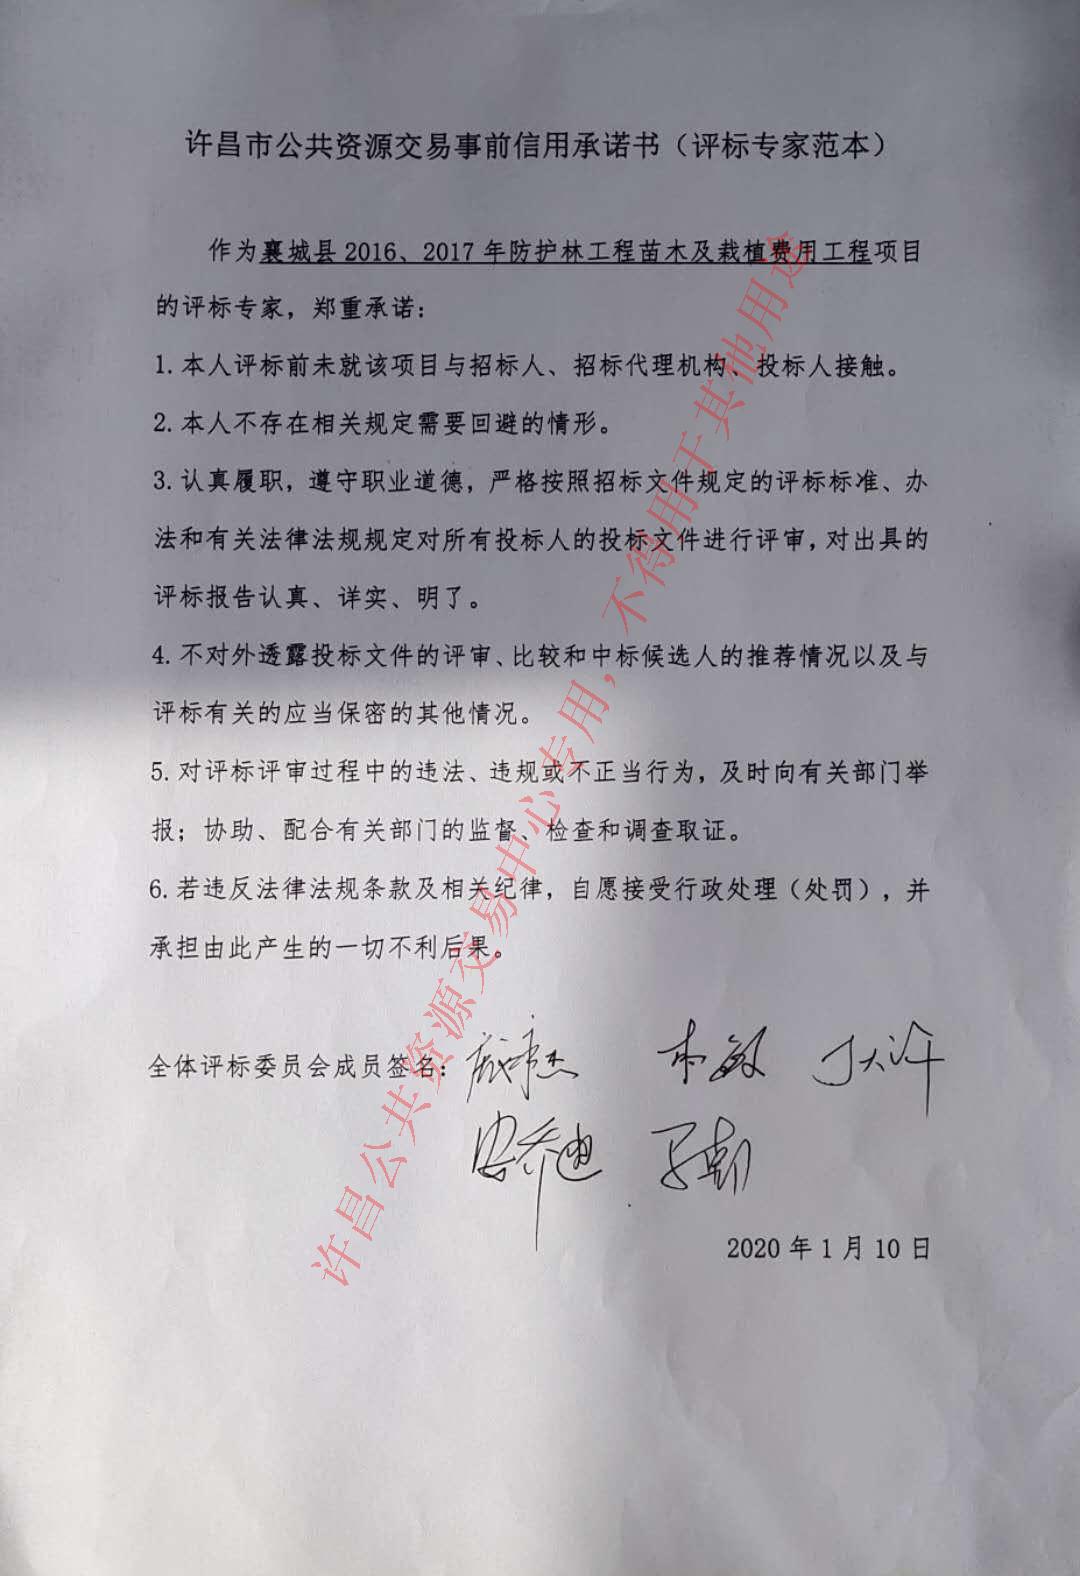 许昌市公共资源交易事前信用承诺书（评标专家范本）
作为襄城县2016、2017年防护林工程苗木及栽植费用工程项目
的评标专家，郑重承诺：
1.本人评标前未就该项目与招标人、招标代理机构、投标人接触。
2.本人不存在相关规定需要回避的情形。
3.认真履职，遵守职业道德，严格按照招标文件规定的评标标准、办
法和有关法律法规规定对所有投标人的投标文件进行评审，对出具的
评标报告认真、详实、明了。
4.不对外透露投标文件的评审、比较和中标候选人的推荐情况以及与
评标有关的应当保密的其他情况。
5.对评标评审过程中的违法、违规或不正当行为，及时向有关部门举
报；协助、配合有关部门的监督、检查和调查取证。
6.若违反法律法规条款及相关纪律，自愿接受行政处理（处罚），并
承担由此产生的一切不利后果。
全体评标委员会成员签名：
2020年1月10日
许昌公共资源交易中心专用，不得用于其他用途